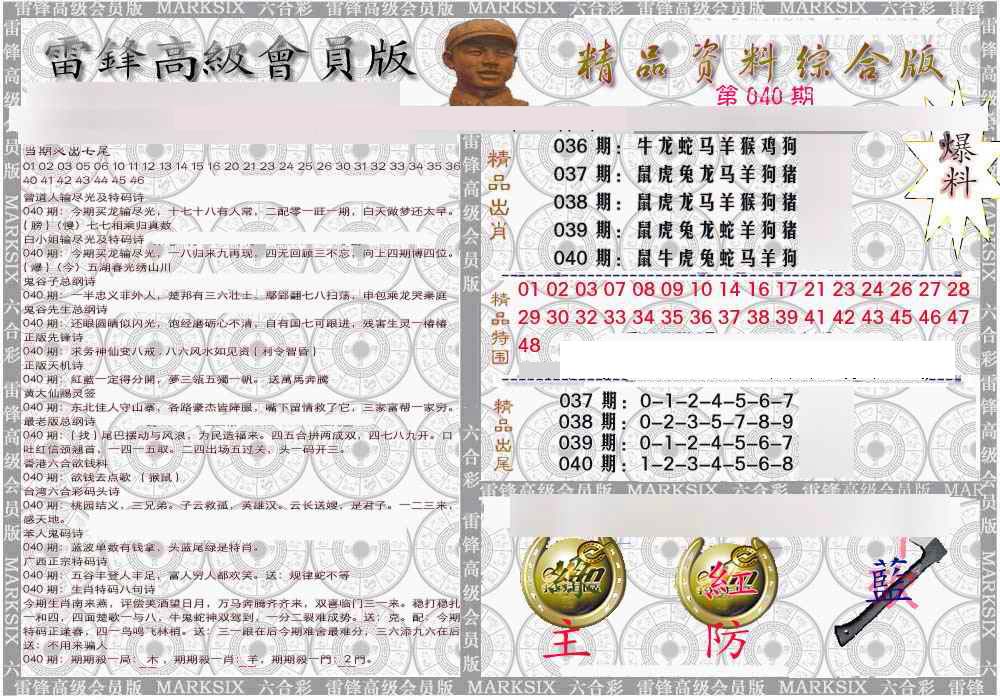 雷锋高级会员版 MARKSIX 六合彩 雷锋高级会员版 MARKSIX 六合彩 雷锋高级会员版 MARKSIX 六合彩
雷鋒高級會員版
精品资料综合版
第 040 期
爆料
当期火出七尾
01 02 03 05 06 10 11 12 13 14 15 16 20 21 23 24 25 26 30 31 32 33 34 35 36
40 41 42 43 44 45 46
曾道人输尽光及特码诗
040 期：今期买龙输尽光，十七十八有人常，二配零一旺一期，白天做梦还太早。
{膀}（慢）七七相乘归真数
白小姐输尽光及特码诗
040 期：今期买龙输尽光，一八归来九再现，四无回顾三不忘，向上四期博四位。
{爆}（今）五湖春光绣山川
鬼谷子总纲诗
040 期：一半忠义非外人，楚邦有三六壮士，鄢郢翻七八扫荡，申包乘龙哭秦庭
鬼谷先生总纲诗
040 期：还眼圆睛似闪光，饱经磨砺心不清，自有国七可跟进，残害生灵一椿椿
正版先锋诗
040 期：求务神仙变八戒，八六风水如见资{利令智昏}
正版天机诗
040 期：紅藍一定得分開，夢三瓴五獨一帆。 送萬馬奔騰
黄大仙赐灵签
040 期：东北佳人守山寨，各路豪杰皆降服，嘴下留情救了它，三家富帮一家穷。
最老版总纲诗
040 期：{技}尾巴摆动与风浪，为民造福来。四五合拼两成双，四七八九开。口
吐红信领翘首，一四一五取。二四出场五过关，头一码开三。
香港六合欲钱料
040 期：欲钱去点歌 {猴鼠}
台湾六合彩码头诗
040 期：桃园结义，三兄弟。子云救孤，英雄汉。云长送嫂，是君子。一二三来，
感天地。
苯人鬼码诗
040 期：蓝波单数有钱拿，头蓝尾绿是特肖。
广西正宗特码诗
040 期：五谷丰登人丰足，富人穷人都欢笑。送：规律蛇不等
040 期：生肖特码八句诗
今期生肖南来燕，评偿美酒望日月，万马奔腾齐齐来，双喜临门三一来。稳打稳扎
一和四，四面楚歌一与八，牛鬼蛇神双驾到，一分二裂难成势。送：克。配：今期
特码正逢春，四一鸟鸣飞林梢。送：三一跟在后今期难舍最难分，三六添九六在后
送：不用来骗人
040 期：期期殺一局：木，期期殺一肖：羊，期期殺一門：2 門。
精品出肖
036 期：牛龙蛇马羊猴鸡狗
037 期：鼠虎兔龙马羊狗猪
038 期：鼠虎龙马羊猴狗猪
039 期：鼠虎兔龙蛇羊狗猪
040 期：鼠牛虎兔蛇马羊狗
精品特围
01 02 03 07 08 09 10 14 16 17 21 23 24 26 27 28
29 30 32 33 34 35 36 37 38 39 41 42 43 45 46 47
48
精品出尾
037 期：0-1-2-4-5-6-7
038 期：0-2-3-5-7-8-9
039 期：0-1-2-4-5-6-7
040 期：1-2-3-4-5-6-8
雷锋高级会员版 MARKSIX 六合彩 雷锋高级会员版 MAR
紅
藍
主
防
雷锋高级会员版 MARKSIX 六合彩 雷锋高级会员版 MARKSIX 六合彩 雷锋高级会员版 MARKSIX 六合彩 雷锋